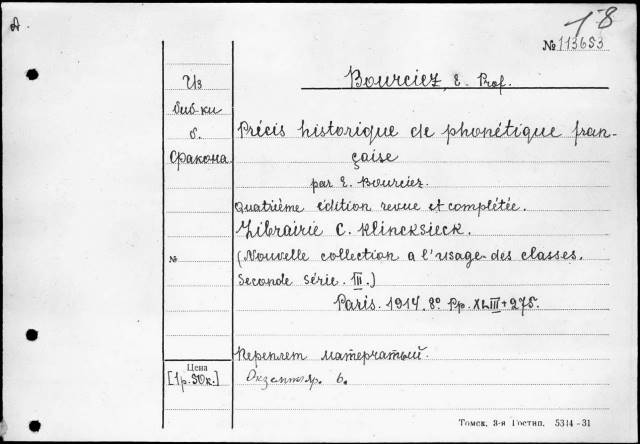 A
1-8
№ 113653
Из
биб-ки
б.
Факона
Bourciez, E. Prof.
Précis historique de phonétique fran-
çaise
par E. Bourciez.
Quatrième édition revue et complétée.
Librairie C. Klincksieck.
(Nouvelle collection a l'usage des classes.
Seconde Série. III.)
Paris. 1914. 8° Pp. XLIII+275.
№
Переплет матерчатый.
Цена
[1р.50к.]
Экземпляр. 6.
Томск. 3-я Гостип. 5314-31